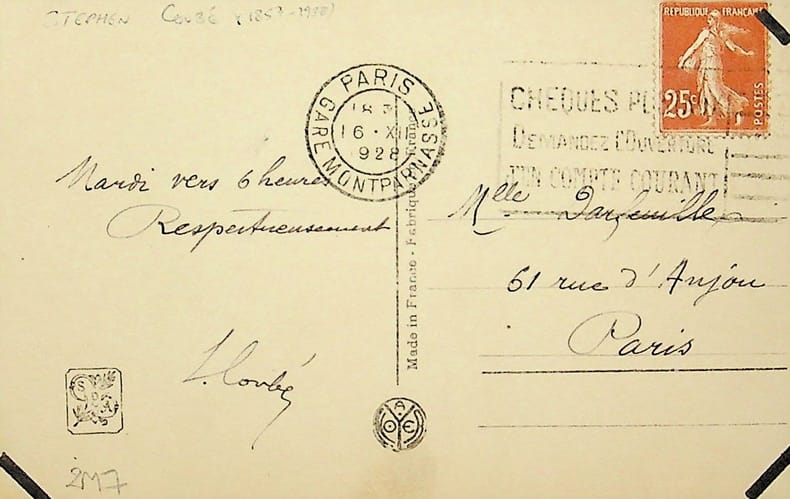 STEPHEN COUBÉ (1857-1938)
RÉPUBLIQUE FRANÇAISE
25c
POSTES
PARIS
18
16 · XII
1928
GARE MONTPARNASSE
CHEQUES
DEMANDEZ L'OUVERTURE
D'UN COMPTE COURANT
Mardi vers 6 heures
Respectueusement
S. Coubé
Mlle Darfeuille
61 rue d'Anjou
Paris
Made in France - Fabriqué
2M7